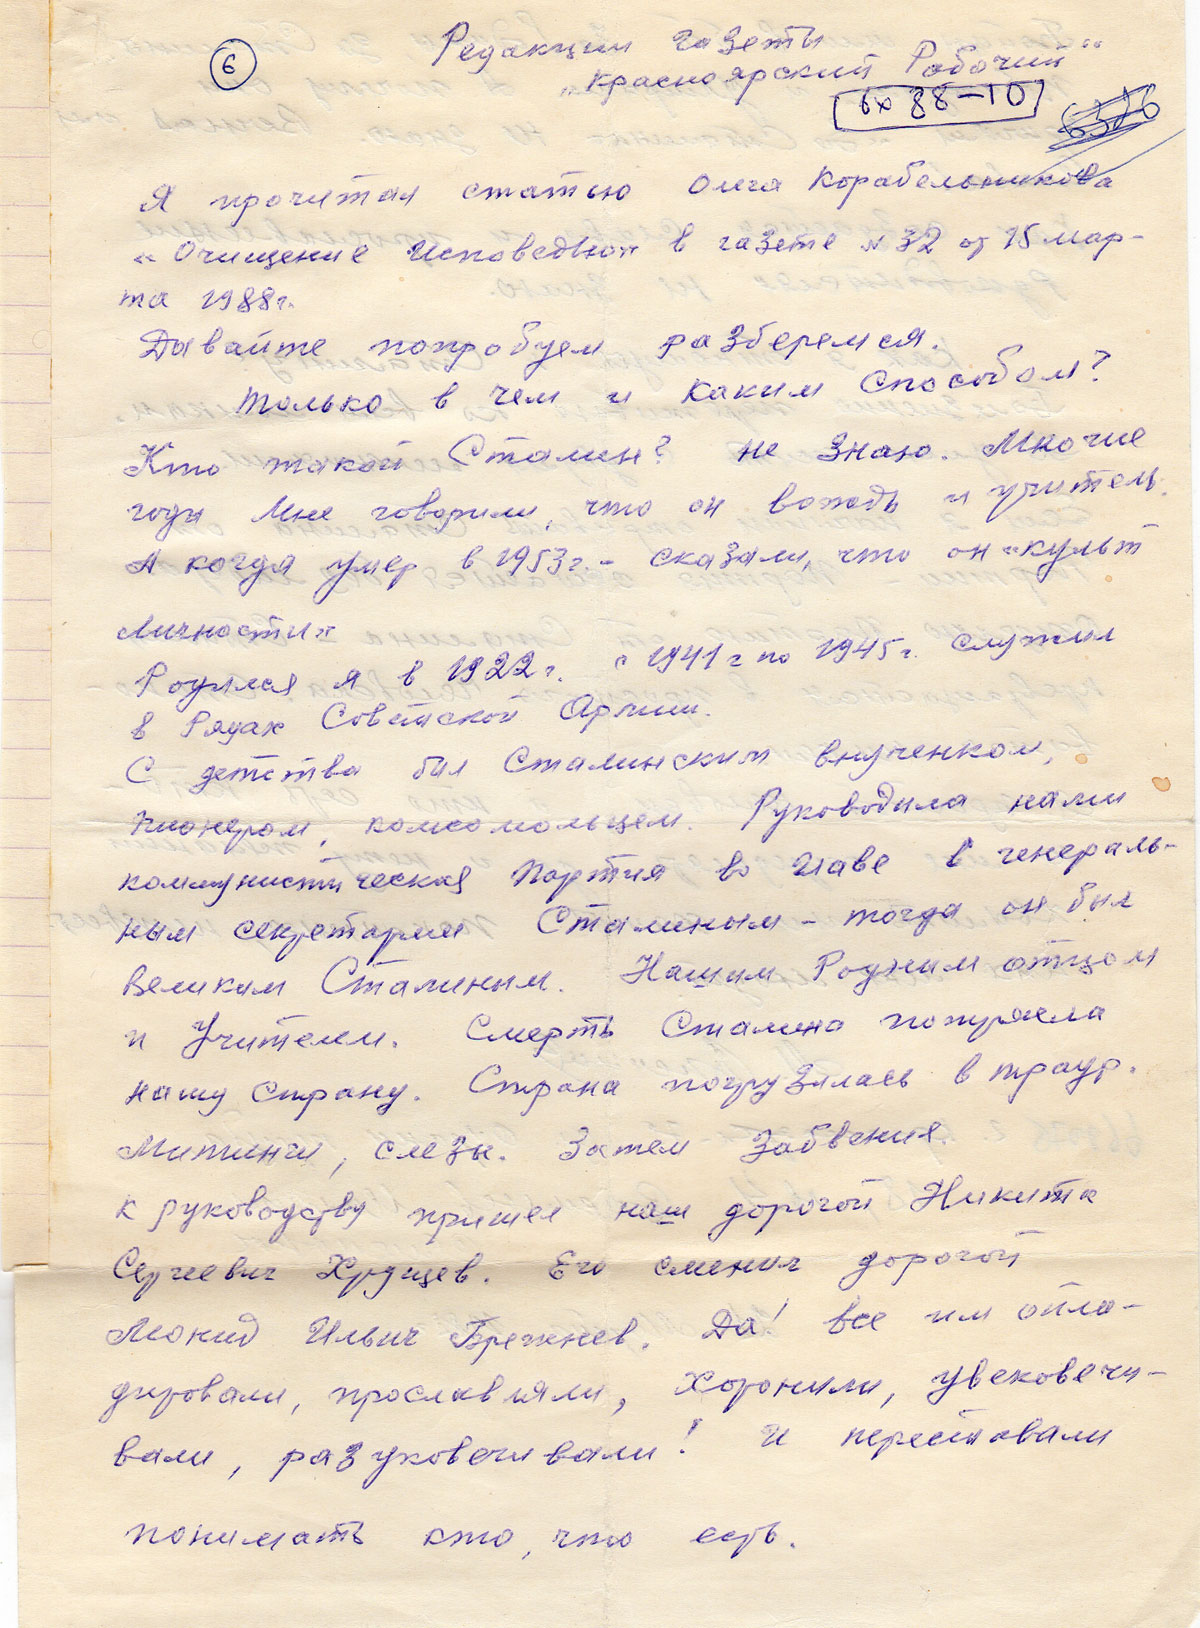 6
Редакции газеты
„Красноярский Рабочий“
вх 88-10
Я прочитал статью Олега Корабельникова
„Очищение Исповедью“ в газете № 32 от 15 мар-
та 1988г.
Дывайте попробуем разберемся.
только в чем и каким способом?
Кто такой Сталин? не знаю. Многие
годы мне говорили, что он вождь и учитель.
А когда умер в 1953г. - сказали, что он «культ
личности»
Родился я в 1922 г. с 1941 г по 1945 г. служил
в Рядах Советской Армии.
С детства был Сталинским внученком,
пионером, комсомольцем. Руководила нами
коммунистическая партия во главе в генераль-
ным секретарем Сталиным - тогда он был
Великим Сталиным. Нашим Родным отцом
и Учителем. Смерть Сталина потрясла
нашу страну. Страна погрузилась в траур.
Митинги, слезы. Затем Забвения.
к руководству пришел наш дорогой Никита
Сергеевич Хрущев. Его сменил дорогой
Леонид Ильич Брежнев. Да! все им опла-
дировали, прославляли, хоронили, увековечи-
вали, разуковечивали! и перестовали
понимать кто, что есть.